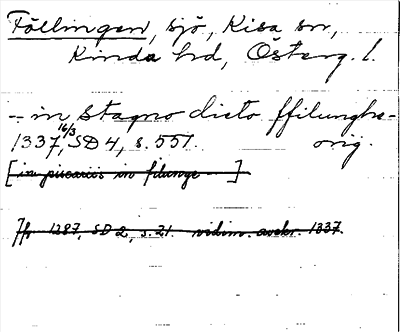 Föllingen, sjö, Kisa sn,
Kinda hd, Österg. l.
-- in stagno dicto ffilunghe-
1337 16/3, SD 4, s. 551. orig.
[in piscariis in filunge -- ]
Jfr 1287, SD 2, s. 21. vidim. avskr. 1337.